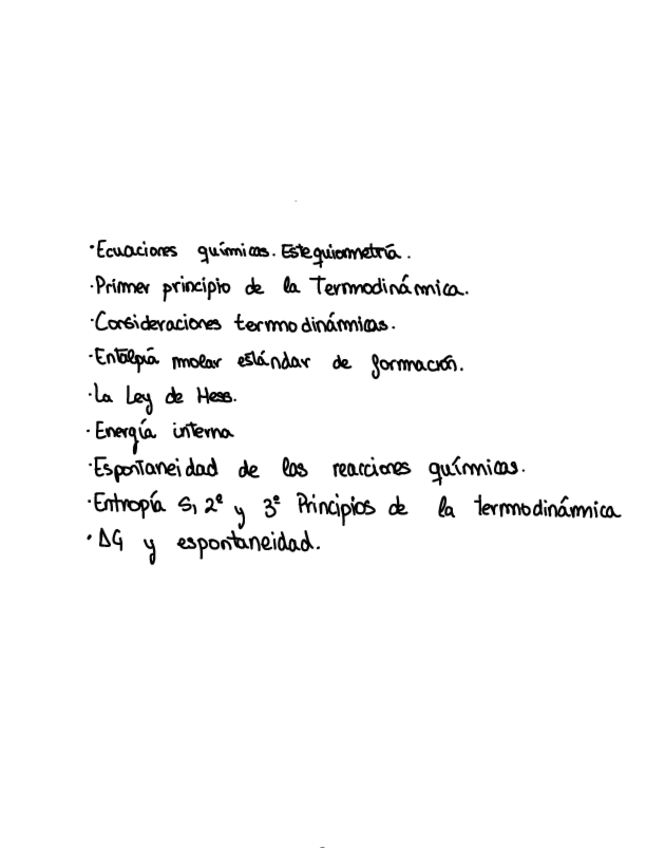 ·Ecuaciones químicas. Estequiometría.
·Primer principio de la Termodinámica.
·Consideraciones termodinámicas.
·Entalpía molar estándar de formación.
·La Ley de Hess.
·Energía interna
·Espontaneidad de las reacciones químicas.
·Entropía S, 2º y 3º Principios de la termodinámica
·ΔG y espontaneidad.